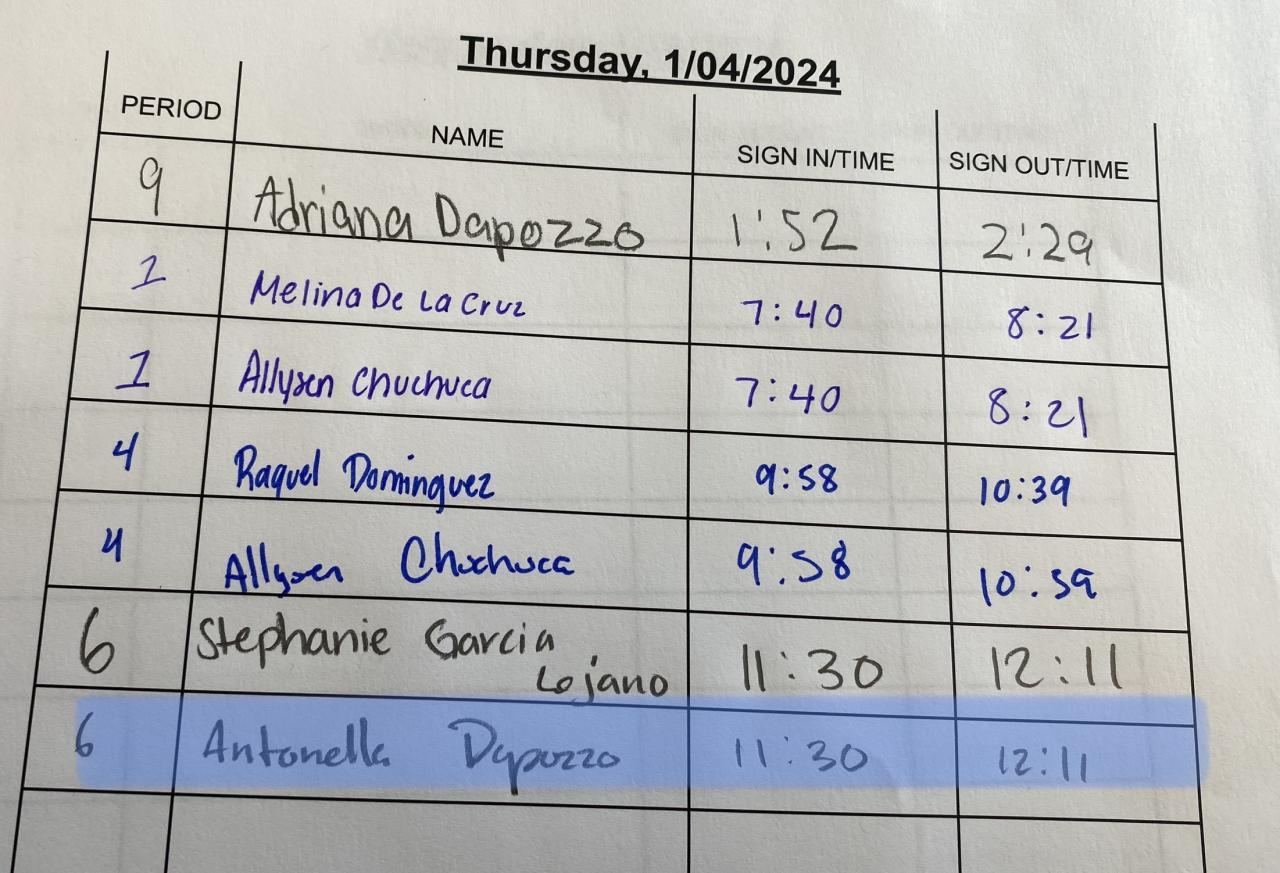 Thursday, 1/04/2024
PERIOD NAME SIGN IN/TIME SIGN OUT/TIME
9 Adriana Dapozzo 1:52 2:29
1 Melina De La Cruz 7:40 8:21
1 Allysen Chuchuca 7:40 8:21
4 Raquel Dominguez 9:58 10:39
4 Allysen Chuchuca 9:58 10:59
6 Stephanie Garcia 11:30 12:11
Lojano
6 Antonella Dapozzo 11:30 12:11